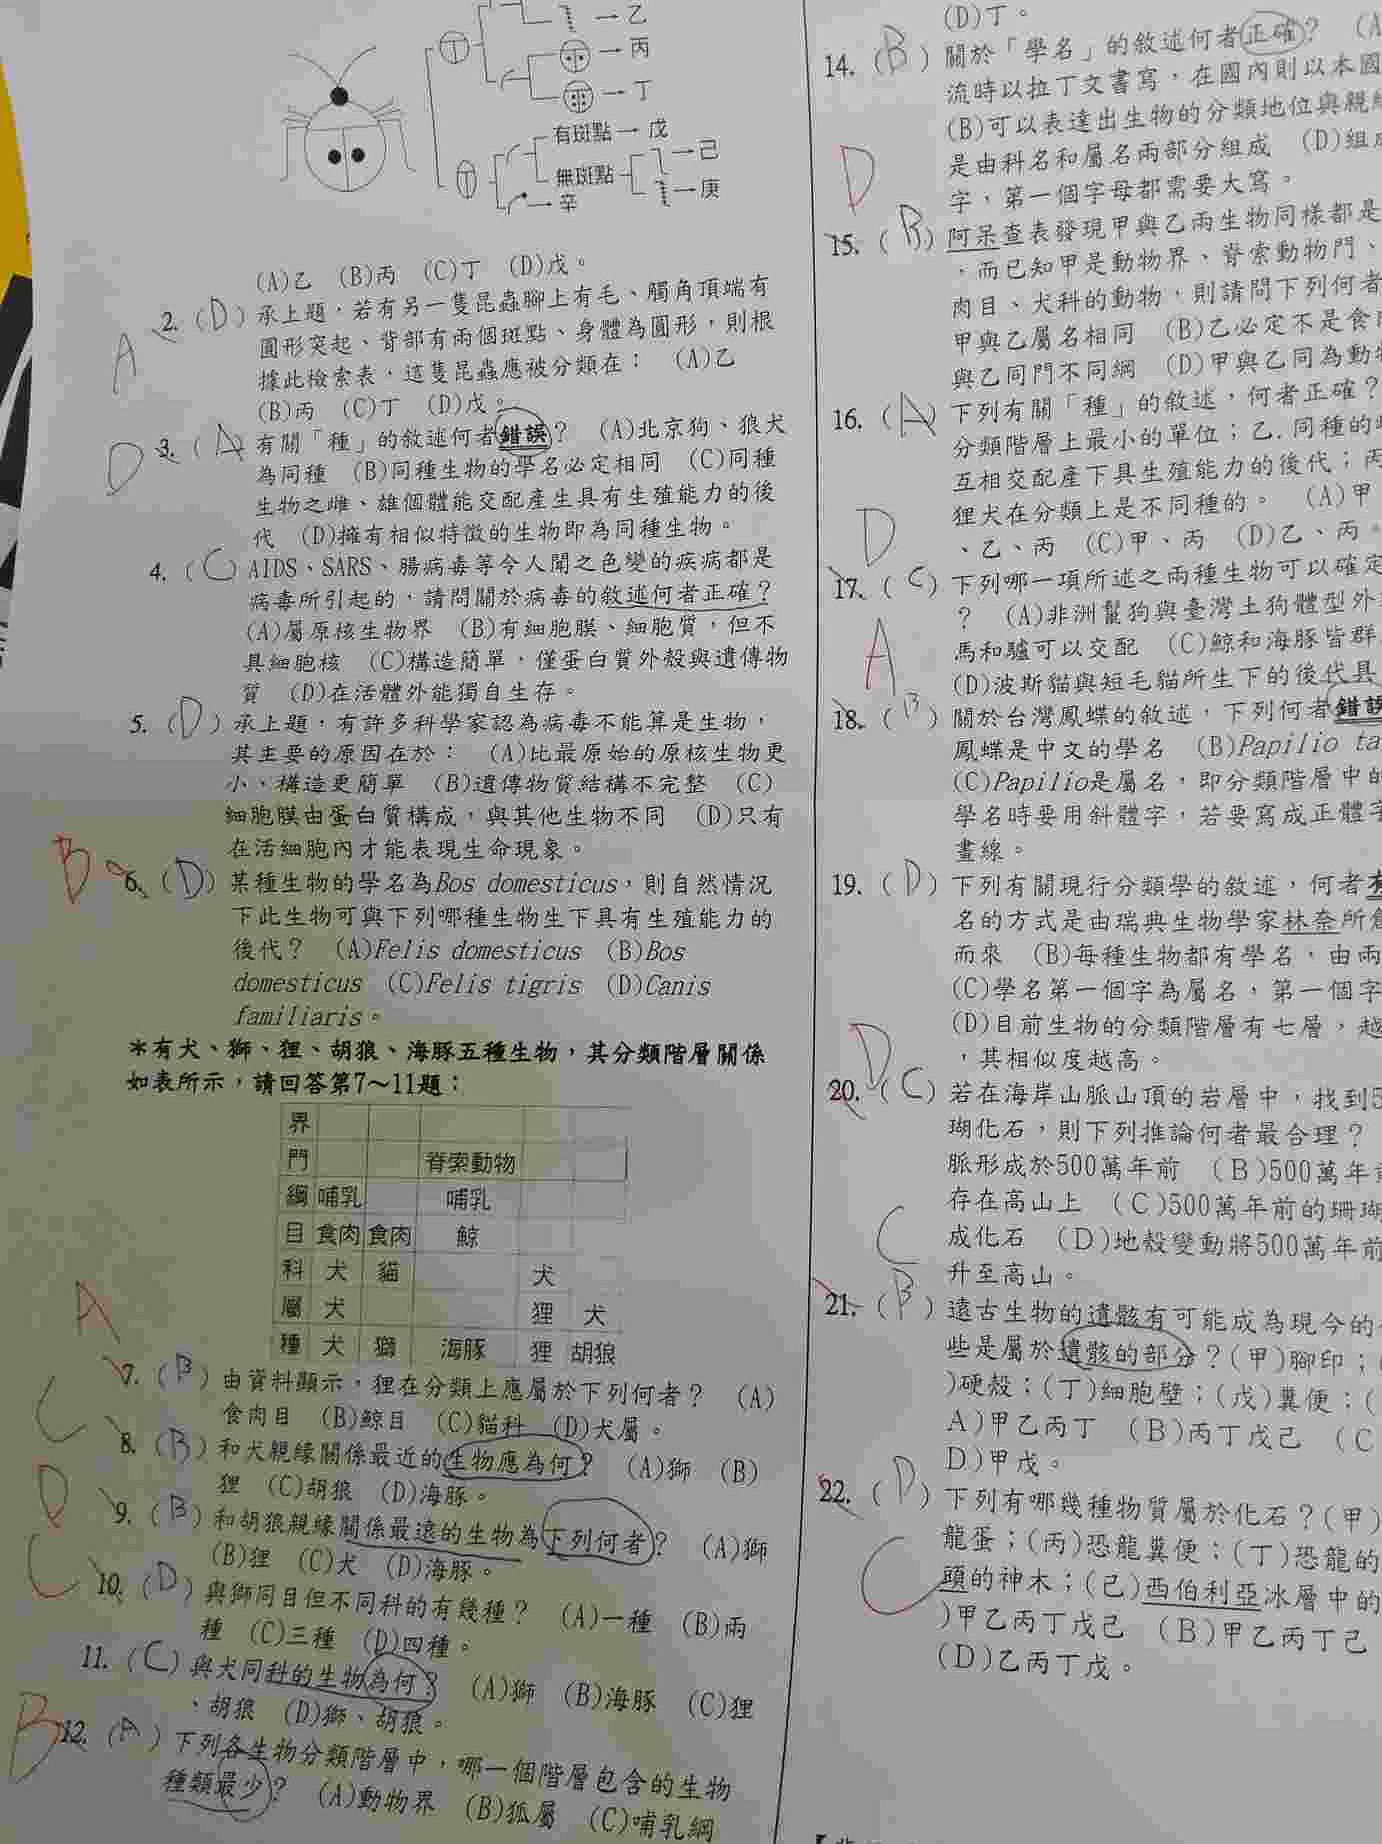 乙
丙
丁
丁
有斑點
戊
無斑點
己
庚
丁
辛
(A)乙 (B)丙 (C)丁 (D)戊。
A 2. (D) 承上題，若有另一隻昆蟲腳上有毛、觸角頂端有
圓形突起、背部有兩個斑點、身體為圓形，則根
據此檢索表，這隻昆蟲應被分類在： (A)乙
(B)丙 (C)丁 (D)戊。
D 3. (A) 有關「種」的敘述何者錯誤？ (A)北京狗、狼犬
為同種 (B)同種生物的學名必定相同 (C)同種
生物之雌、雄個體能交配產生具有生殖能力的後
代 (D)擁有相似特徵的生物即為同種生物。
4. (C) AIDS、SARS、腸病毒等令人聞之色變的疾病都是
病毒所引起的，請問關於病毒的敘述何者正確？
(A)屬原核生物界 (B)有細胞膜、細胞質，但不
具細胞核 (C)構造簡單，僅蛋白質外殼與遺傳物
質 (D)在活體外能獨自生存。
5. (D) 承上題，有許多科學家認為病毒不能算是生物，
其主要的原因在於： (A)比最原始的原核生物更
小、構造更簡單 (B)遺傳物質結構不完整 (C)
細胞膜由蛋白質構成，與其他生物不同 (D)只有
在活細胞內才能表現生命現象。
B 6. (D) 某種生物的學名為Bos domesticus，則自然情況
下此生物可與下列哪種生物生下具有生殖能力的
後代？ (A)Felis domesticus (B)Bos
domesticus (C)Felis tigris (D)Canis
familiaris。
＊有犬、獅、狸、胡狼、海豚五種生物，其分類階層關係
如表所示，請回答第7～11題：
界
門 脊索動物
綱 哺乳 哺乳
目 食肉 食肉 鯨
科 犬 貓 犬
屬 犬 狸 犬
種 犬 獅 海豚 狸 胡狼
A 7. (B) 由資料顯示，狸在分類上應屬於下列何者？ (A)
食肉目 (B)鯨目 (C)貓科 (D)犬屬。
C 8. (B) 和犬親緣關係最近的生物應為何？ (A)獅 (B)
狸 (C)胡狼 (D)海豚。
D 9. (B) 和胡狼親緣關係最遠的生物為下列何者？ (A)獅
(B)狸 (C)犬 (D)海豚。
C 10. (D) 與獅同目但不同科的有幾種？ (A)一種 (B)兩
種 (C)三種 (D)四種。
11. (C) 與犬同科的生物為何？ (A)獅 (B)海豚 (C)狸
、胡狼 (D)獅、胡狼。
B 12. (A) 下列各生物分類階層中，哪一個階層包含的生物
種類最少？ (A)動物界 (B)狐屬 (C)哺乳綱
(D)丁。
14. (B) 關於「學名」的敘述何者正確？ (A
流時以拉丁文書寫，在國內則以本國
(B)可以表達出生物的分類地位與親
是由科名和屬名兩部分組成 (D)組
字，第一個字母都需要大寫。
D 15. (B) 阿呆查表發現甲與乙兩生物同樣都是
，而已知甲是動物界、脊索動物門、
肉目、犬科的動物，則請問下列何者
甲與乙屬名相同 (B)乙必定不是食
與乙同門不同綱 (D)甲與乙同為動
16. (A) 下列有關「種」的敘述，何者正確？
分類階層上最小的單位；乙.同種的
互相交配產下具生殖能力的後代；丙
狸犬在分類上是不同種的。 (A)甲
、乙、丙 (C)甲、丙 (D)乙、丙。
D 17. (C) 下列哪一項所述之兩種生物可以確定
？ (A)非洲鬣狗與臺灣土狗體型外
馬和驢可以交配 (C)鯨和海豚皆群
(D)波斯貓與短毛貓所生下的後代具
A 18. (B) 關於台灣鳳蝶的敘述，下列何者錯誤
鳳蝶是中文的學名 (B)Papilio ta
(C)Papilio是屬名，即分類階層中的
學名時要用斜體字，若要寫成正體字
畫線。
19. (D) 下列有關現行分類學的敘述，何者
名的方式是由瑞典生物學家林奈所
而來 (B)每種生物都有學名，由兩
(C)學名第一個字為屬名，第一個字
(D)目前生物的分類階層有七層，越
，其相似度越高。
D 20. (C) 若在海岸山脈山頂的岩層中，找到5
瑚化石，則下列推論何者最合理？
脈形成於500萬年前 (B)500萬年
存在高山上 (C)500萬年前的珊瑚
成化石 (D)地殼變動將500萬年前
升至高山。
C 21. (B) 遠古生物的遺骸有可能成為現今的
些是屬於遺骸的部分？(甲)腳印；(
)硬殼；(丁)細胞壁；(戊)糞便：(
A)甲乙丙丁 (B)丙丁戊己 (C
D)甲戊。
22. (D) 下列有哪幾種物質屬於化石？(甲)
龍蛋；(丙)恐龍糞便；(丁)恐龍的
C 頭的神木；(己)西伯利亞冰層中的
)甲乙丙丁戊己 (B)甲乙丙丁己
(D)乙丙丁戊。